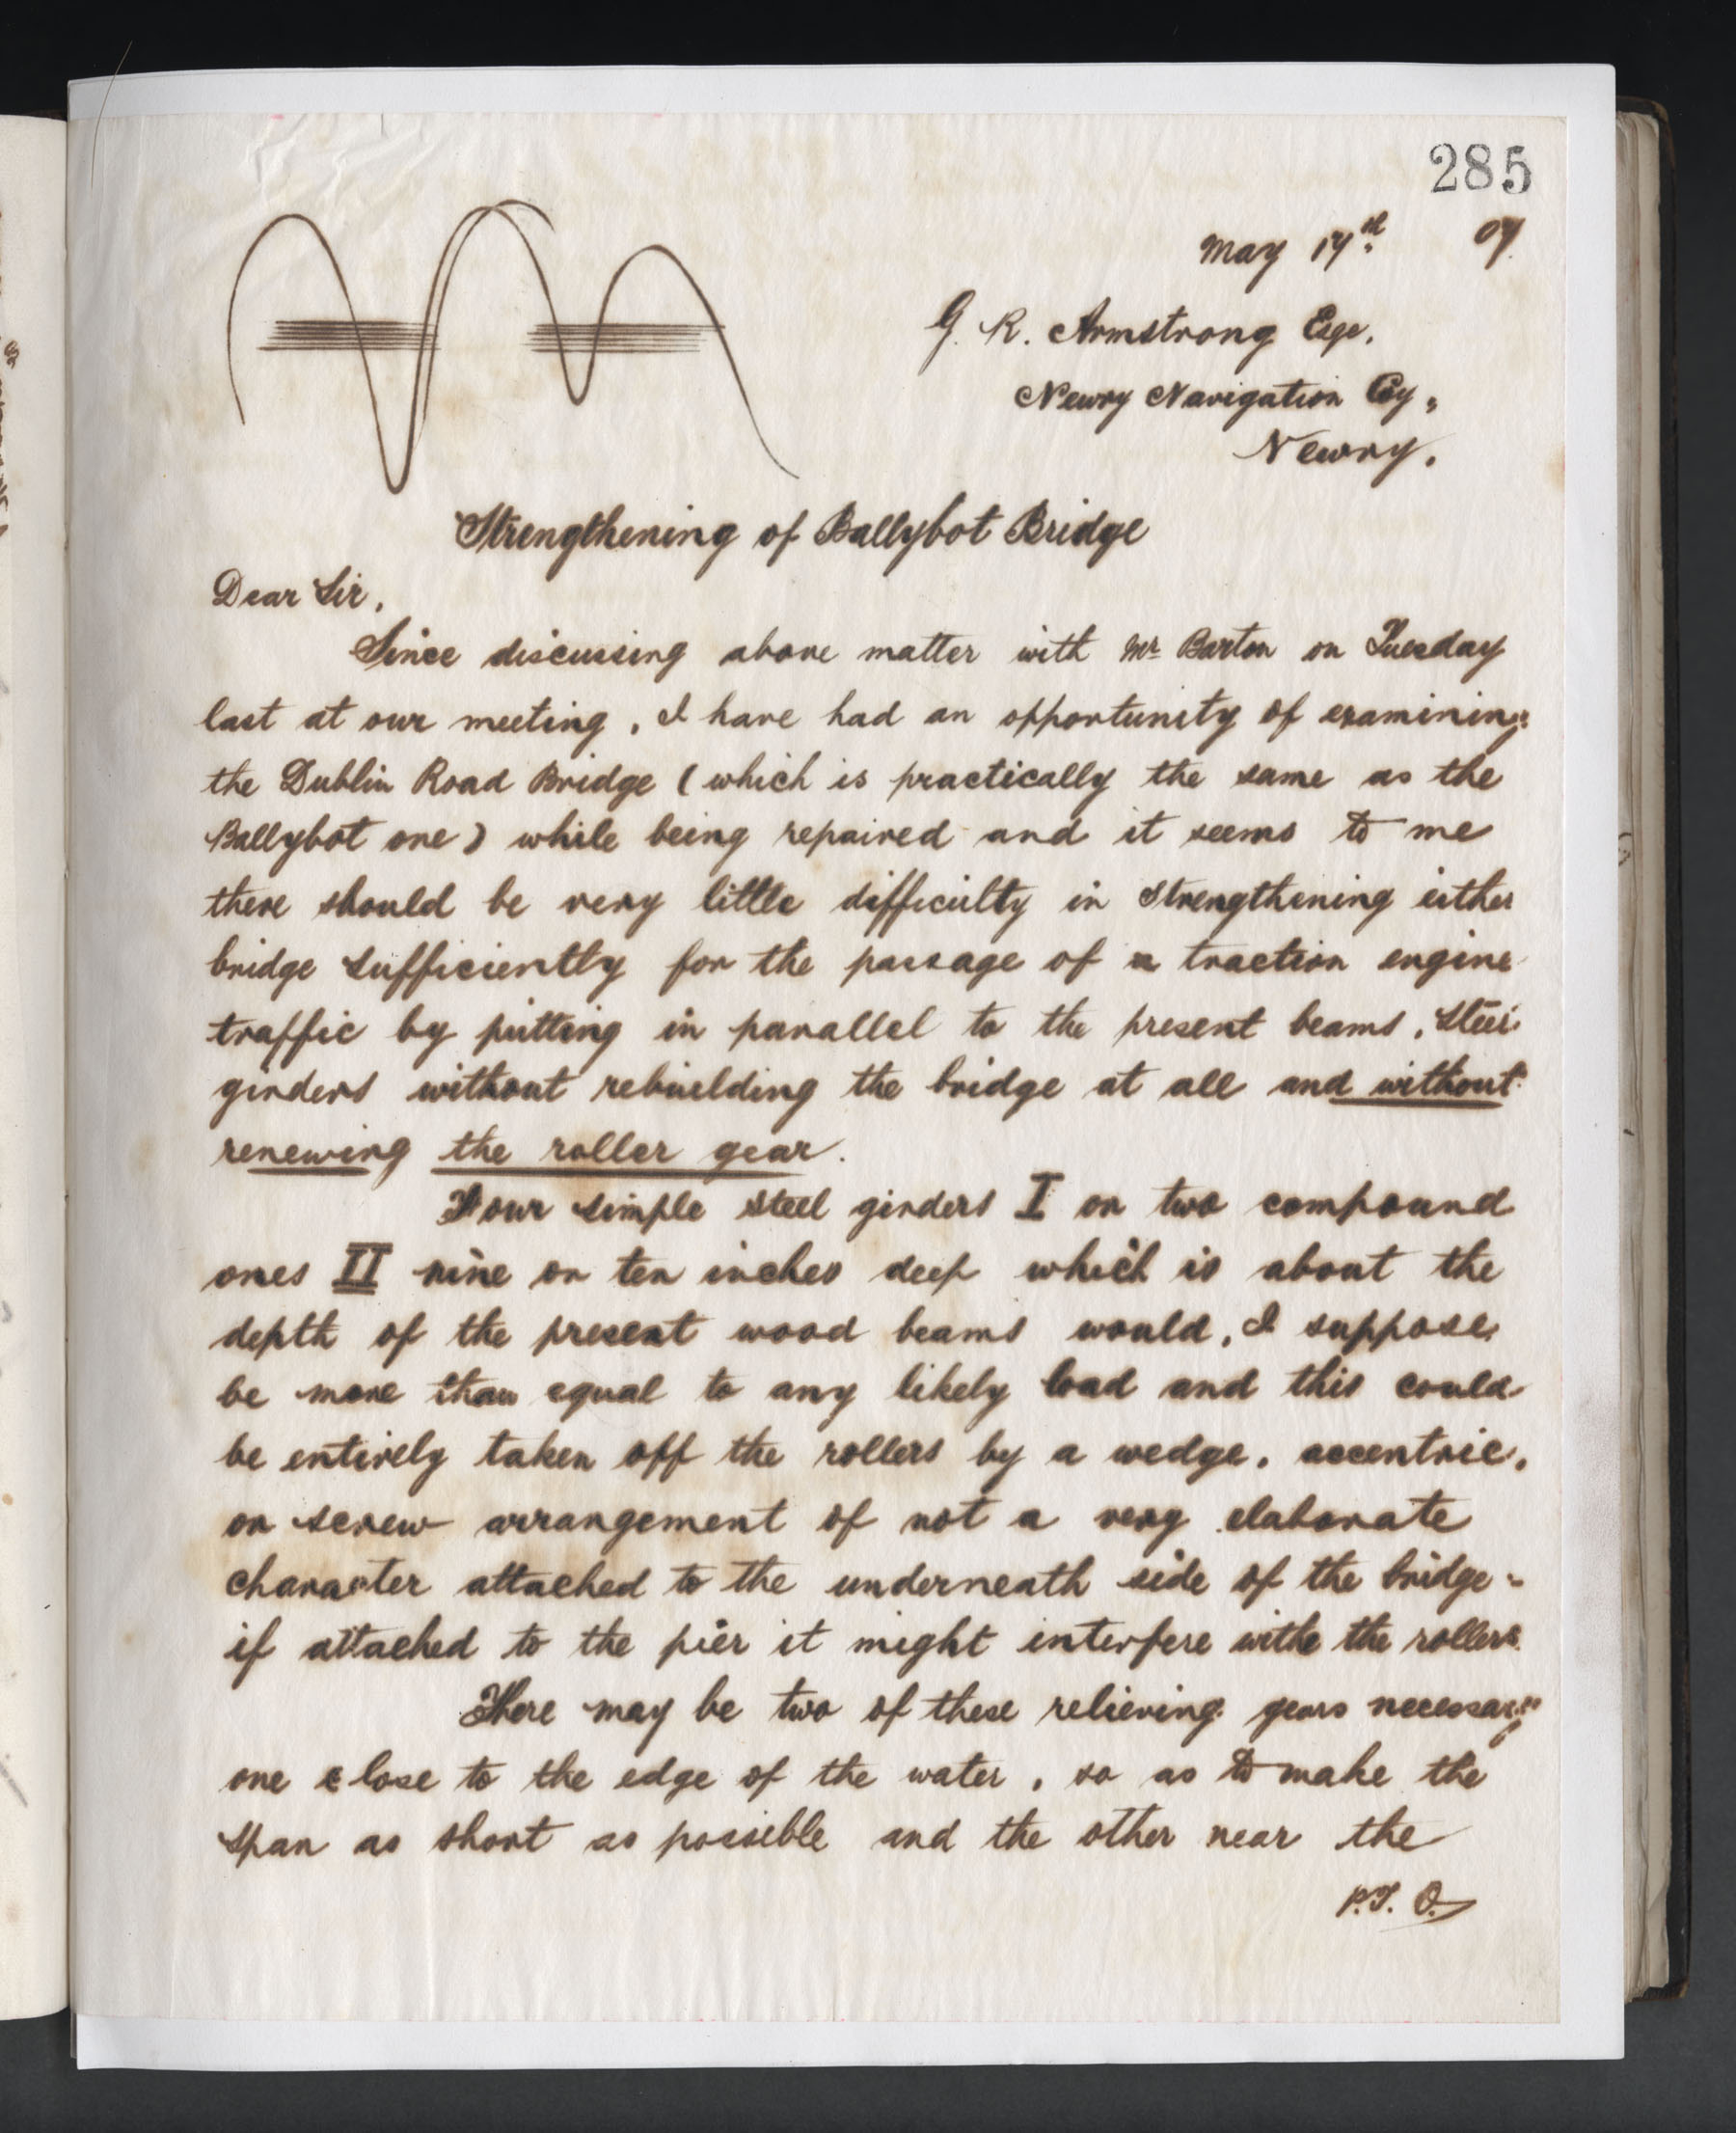 285
May 17th 07
G. R. Armstrong Esqe.
Newry Navigation Coy,
Newry.
Strengthening of Ballybot Bridge
Dear Sir,
Since discussing above matter with Mr Barton on Tuesday
last at our meeting, I have had an opportunity of examining
the Dublin Road Bridge (which is practically the same as the
Ballybot one) while being repaired and it seems to me
there should be very little difficulty in strengthening either
bridge sufficiently for the passage of a traction engine
traffic by putting in parallel to the present beams, steel
girders without rebuilding the bridge at all and without
renewing the roller gear.
Four simple steel girders I or two compound
ones II nine or ten inches deep which is about the
depth of the present wood beams would, I suppose,
be more than equal to any likely load and this could
be entirely taken off the rollers by a wedge, accentric,
or screw arrangement of not a very elaborate
character attached to the underneath side of the bridge -
if attached to the pier it might interfere withe the rollers.
There may be two of these relieving gears necessary
one close to the edge of the water, so as to make the
span as short as possible and the other near the
P.T.O.